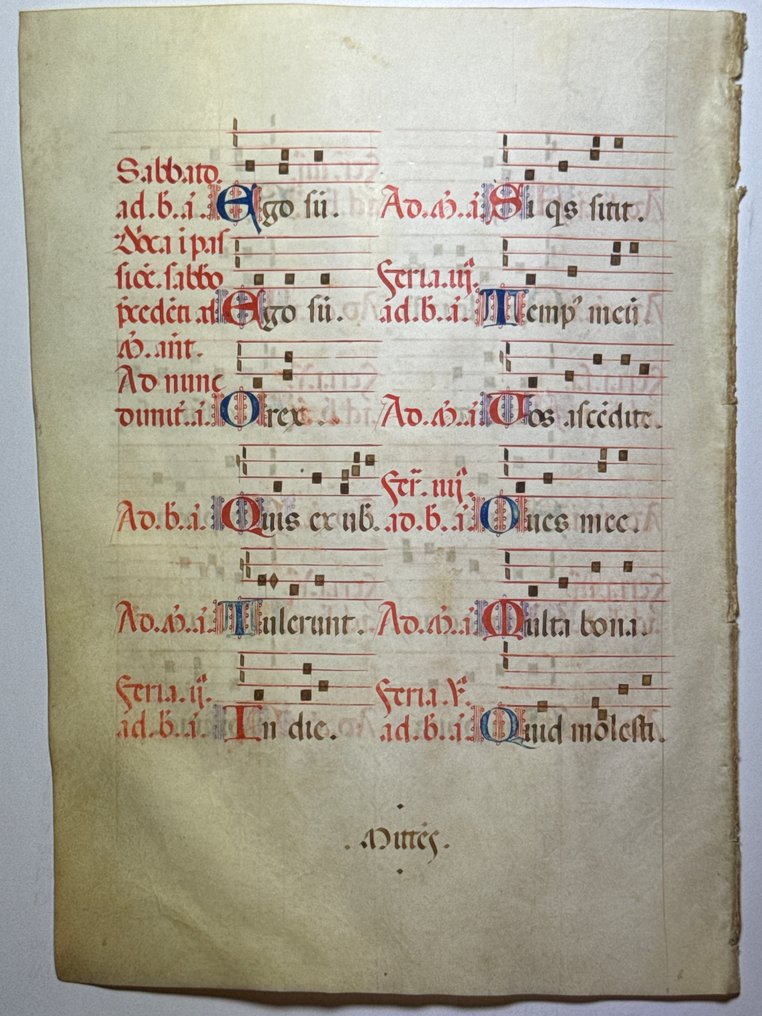 Sabbato
ad. b. a. Ego sū.
Dn̄ca i pas
siōe. sabbo
p̄cedēti ad Ego sū.
M̄. ant.
Ad nunc
dimit̄. a. O rex.
Ad. b. a. Quis ex uob̄.
Ad. m̄. a. Tulerunt.
Feria. ij.
ad. b. a. In die.
Ad. m̄. a. Si qs sitit.
Feria. iij.
ad. b. a. Temp' meū
Ad. m̄. a. Uos ascēdite.
Fer̄. iiij.
ad. b. a. Oues mee.
Ad. m̄. a. Multa bona.
Feria. v.
ad. b. a. Quid molesti.
.Mittēs.